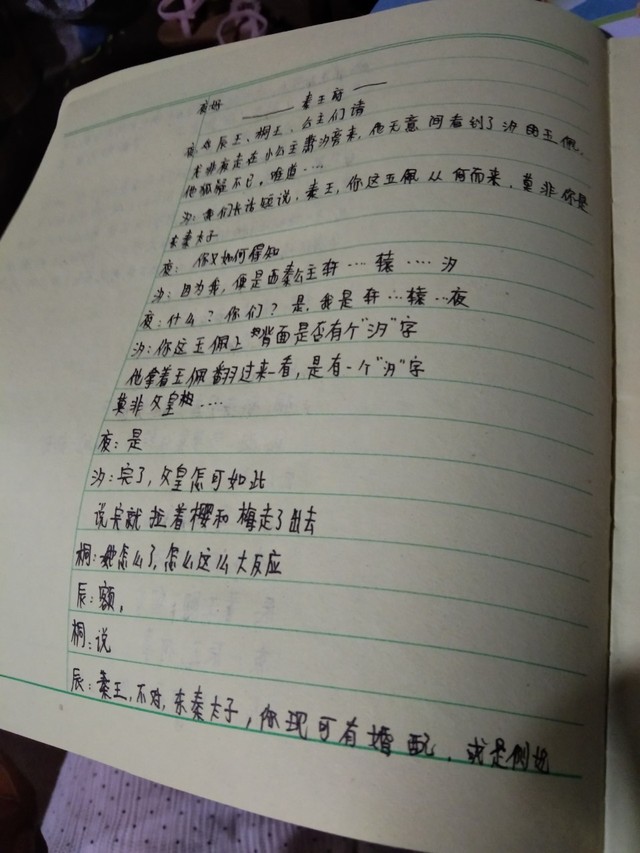 —— 秦王府 ——
夜:辰王、桐王、公主们请
北非夜走在小公主 汐旁来,他无意间看到了汐的玉佩,
他狐疑不已,难道····
汐:我们长话短说,秦王,你这玉佩从何而来,莫非你是
东秦太子
夜:你又如何得知
汐:因为我,便是西秦公主轩····辕····汐
夜:什么?你们?是,我是轩···辕···夜
汐:你这玉佩上背面是否有个“汐”字
他拿着玉佩翻过来一看,是有一个“汐”字
莫非父皇····
夜:是
汐:完了,父皇怎可如此
说完就拉着樱和梅走了出去
桐:她怎么了,怎么这么大反应
辰:额,
桐:说
辰:秦王,不对,东秦太子,你现可有婚配,或是侧妃